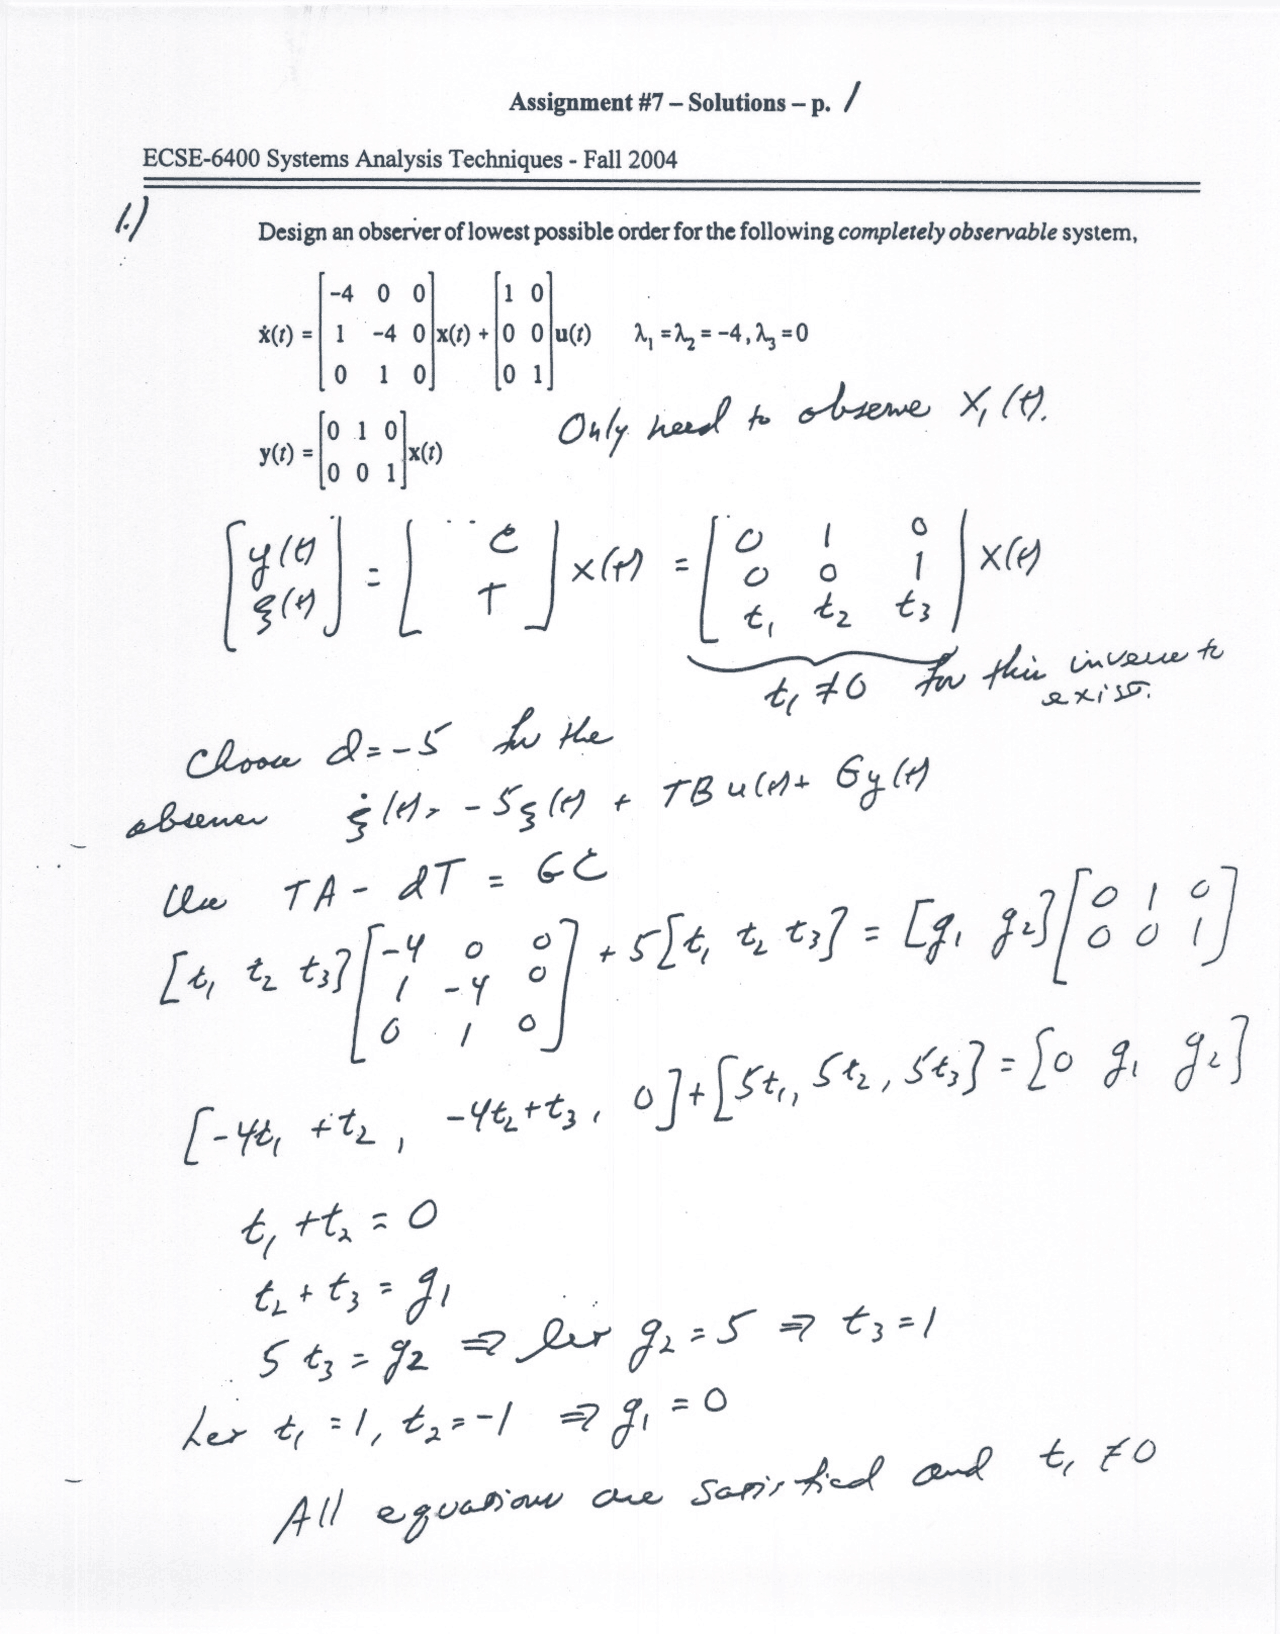 Assignment #7 – Solutions – p. 1
ECSE-6400 Systems Analysis Techniques - Fall 2004
1.)
Design an observer of lowest possible order for the following completely observable system,
ẋ(t) = [-4 0 0; 1 -4 0; 0 1 0] x(t) + [1 0; 0 0; 0 1] u(t) λ₁ = λ₂ = -4, λ₃ = 0
y(t) = [0 1 0; 0 0 1] x(t)
Only need to observe x₁(t).
[y(t); ξ(t)] = [C; T] x(t) = [0 1 0; 0 0 1; t₁ t₂ t₃] x(t)
t₁ ≠ 0 for this inverse to
exist.
Choose d = -5 for the
observer ξ̇(t) = -5ξ(t) + TBu(t) + Gy(t)
Use TA - dT = GC
[t₁ t₂ t₃] [-4 0 0; 1 -4 0; 0 1 0] + 5[t₁ t₂ t₃] = [g₁ g₂] [0 1 0; 0 0 1]
[-4t₁ + t₂, -4t₂ + t₃, 0] + [5t₁, 5t₂, 5t₃] = [0 g₁ g₂]
t₁ + t₂ = 0
t₂ + t₃ = g₁
5t₃ = g₂ ⇒ let g₂ = 5 ⇒ t₃ = 1
Let t₁ = 1, t₂ = -1 ⇒ g₁ = 0
All equations are satisfied and t₁ ≠ 0